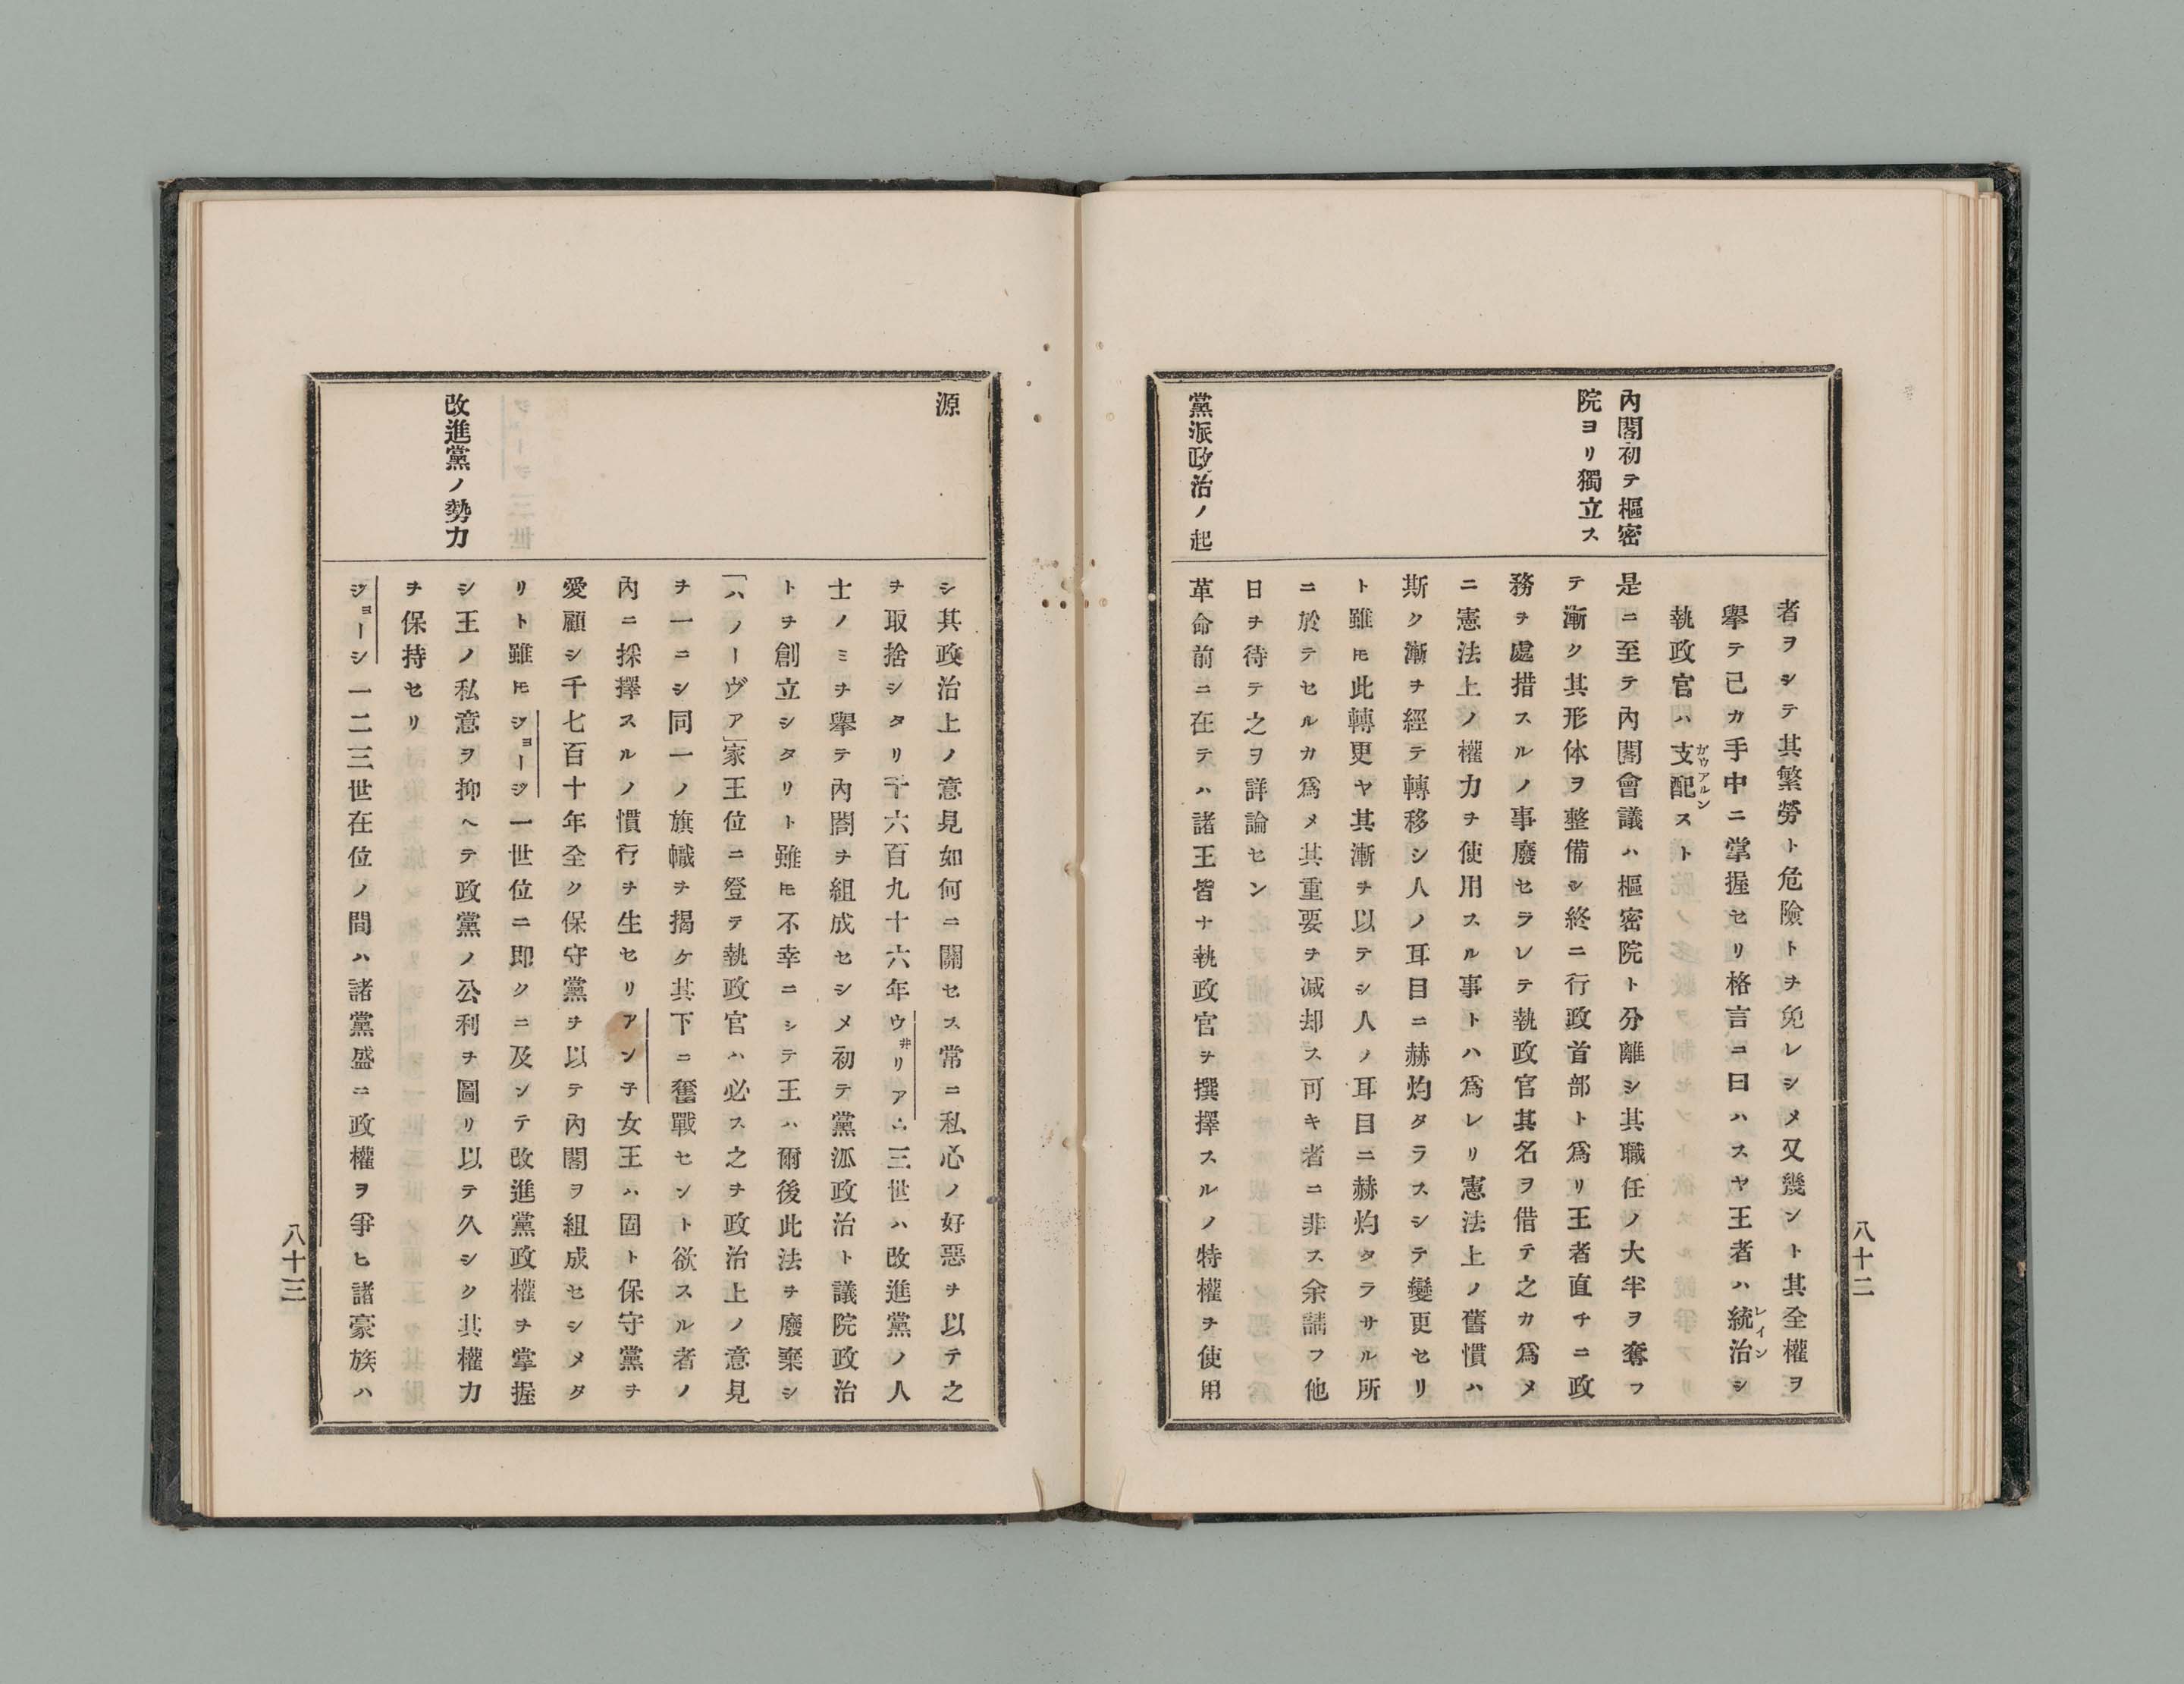 內閣初テ樞密
院ヨリ獨立ス
黨派政治ノ起
者ヲシテ其繁勞ト危險トヲ免レシメ又幾ント其全權ヲ
擧テ己カ手中ニ掌握セリ格言ニ曰ハスヤ王者ハ統治シ
レイン
執政官ハ支配スト
かヴアルン
是ニ至テ內閣會議ハ樞密院ト分離シ其職任ノ大半ヲ奪フ
テ漸ク其形体ヲ整備シ終ニ行政首部ト爲リ王者直チニ政
務ヲ處措スルノ事廢セラレテ執政官其名ヲ借テ之カ爲メ
ニ憲法上ノ權力ヲ使用スル事トハ爲レリ憲法上ノ舊慣ハ
斯ク漸ヲ經テ轉移シ人ノ耳目ニ赫灼タラスシテ變更セリ
ト雖𪜈此轉更ヤ其漸ヲ以テシ人ノ耳目ニ赫灼タラサル所
ニ於テセルカ爲メ其重要ヲ減却ス可キ者ニ非ス余請フ他
日ヲ待テ之ヲ詳論セン
革命前ニ在テハ諸王皆ナ執政官ヲ撰擇スルノ特權ヲ使用
八十二
源
改進黨ノ勢力
シ其政治上ノ意見如何ニ關セス常ニ私心ノ好惡ヲ以テ之
ヲ取捨シタリ千六百九十六年ウ井リアム三世ハ改進黨ノ人
士ノミヲ擧テ內閣ヲ組成セシメ初テ黨派政治ト議院政治
トヲ創立シタリト雖𪜈不幸ニシテ王ハ爾後此法ヲ廢棄シ
「ハノーヴア」家王位ニ登テ執政官ハ必ス之ヲ政治上ノ意見
ヲ一ニシ同一ノ旗幟ヲ揭ケ其下ニ奮戰セント欲スル者ノ
內ニ採擇スルノ慣行ヲ生セリアン子女王ハ固ト保守黨ヲ
愛顧シ千七百十年全ク保守黨ヲ以テ內閣ヲ組成セシメタ
リト雖𪜈ジョージ一世位ニ即クニ及ンテ改進黨政權ヲ掌握
シ王ノ私意ヲ抑ヘテ政黨ノ公利ヲ圖リ以テ久シク其權力
ヲ保持セリ
ジョーシ一二三世在位ノ間ハ諸黨盛ニ政權ヲ爭ヒ諸豪族ハ
八十三